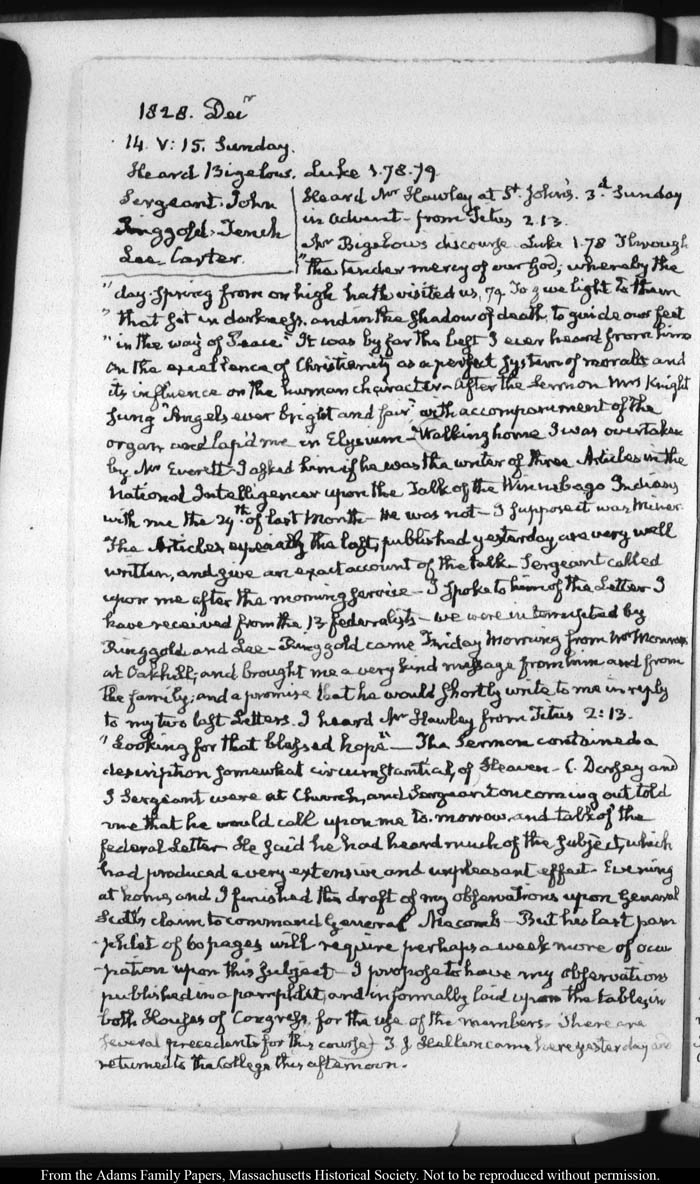 1828. Decr
14. V: 15. Sunday.
Heard Bigelow. Luke 1.78.79
Sergeant. John
Ringgold. Tench
Lee. Carter.
Heard Mr Hawley at St. John's. 3d. Sunday
in advent - from Titus 2.13.
Mr Bigelow's discourse. Luke 1.78 Through
"the tender mercy of our God; whereby the
"day-spring from on high hath visited us, 79 To give light to them
"that sit in darkness, and in the shadow of death, to guide our feet
"in the way of Peace." It was by far the best I ever heard from him
on the excellence of Christianity as a perfect system of morals and
its influence on the human character. After the Sermon Mrs Knight
sung "Angels ever bright and fair" with accompaniment of the
organ and lap'd me in Elysium - Walking home I was overtaken
by Mr Everett - I asked him if he was the writer of three Articles in the
National Intelligencer upon the Talk of the Winnebago Indians
with me the 29th. of last Month - He was not - I suppose it was Miner.
The Articles, especially the last, published yesterday are very well
written, and give an exact account of the talk. Sergeant called
upon me after the morning service - I spoke to him of the Letter I
have received from the 13 federalists - we were interrupted by
Ringgold and Lee - Ringgold came Friday Morning from Mr Monroe
at Oakhill; and brought me a very kind message from him and from
the family; and a promise that he would shortly write to me in reply
to my two last Letters. I heard Mr Hawley from Titus 2:13.
"Looking for that blessed hope" - The Sermon contained a
description somewhat circumstantial, of Heaven - C. Dorsey and
J Sergeant were at Church, and Sergeant on coming out told
me that he would call upon me to-morrow, and talk of the
federal Letter. He said he had heard much of the subject, which
had produced a very extensive and unpleasant effect. Evening
at home, and I finished the draft of my observations upon General
Scott's claim to command General Macomb - But his last pam
-phlet of 60 pages will require perhaps a week more of occu
-pation upon this subject - I propose to have my observations
published in a pamphlet, and informally laid upon the tables, in
both Houses of Congress, for the use of the members. There are
several precedents for this course - T. J. Hellen came here yesterday and
returned to the College this afternoon.
From the Adams Family Papers, Massachusetts Historical Society. Not to be reproduced without permission.